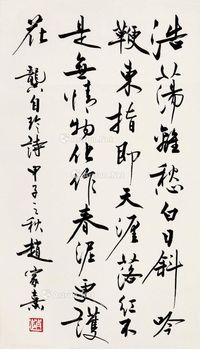 浩荡離愁白日斜吟
鞭東指即天涯落红不
是無情物化作春泥更護
花
龔自珍詩甲子之秋趙家熹